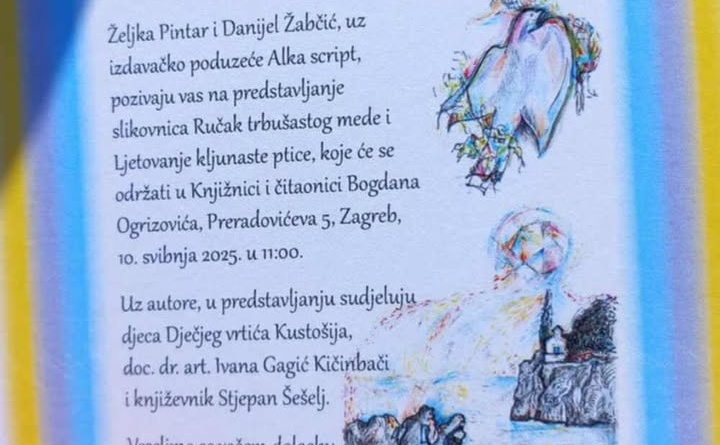 Željka Pintar i Danijel Žabčić, uz
izdavačko poduzeće Alka script,
pozivaju vas na predstavljanje
slikovnica Ručak trbušastog mede i
Ljetovanje kljunaste ptice, koje će se
održati u Knjižnici i čitaonici Bogdana
Ogrizovića, Preradovićeva 5, Zagreb,
10. svibnja 2025. u 11:00.
Uz autore, u predstavljanju sudjeluju
djeca Dječjeg vrtića Kustošija,
doc. dr. art. Ivana Gagić Kičinbači
i književnik Stjepan Šešelj.